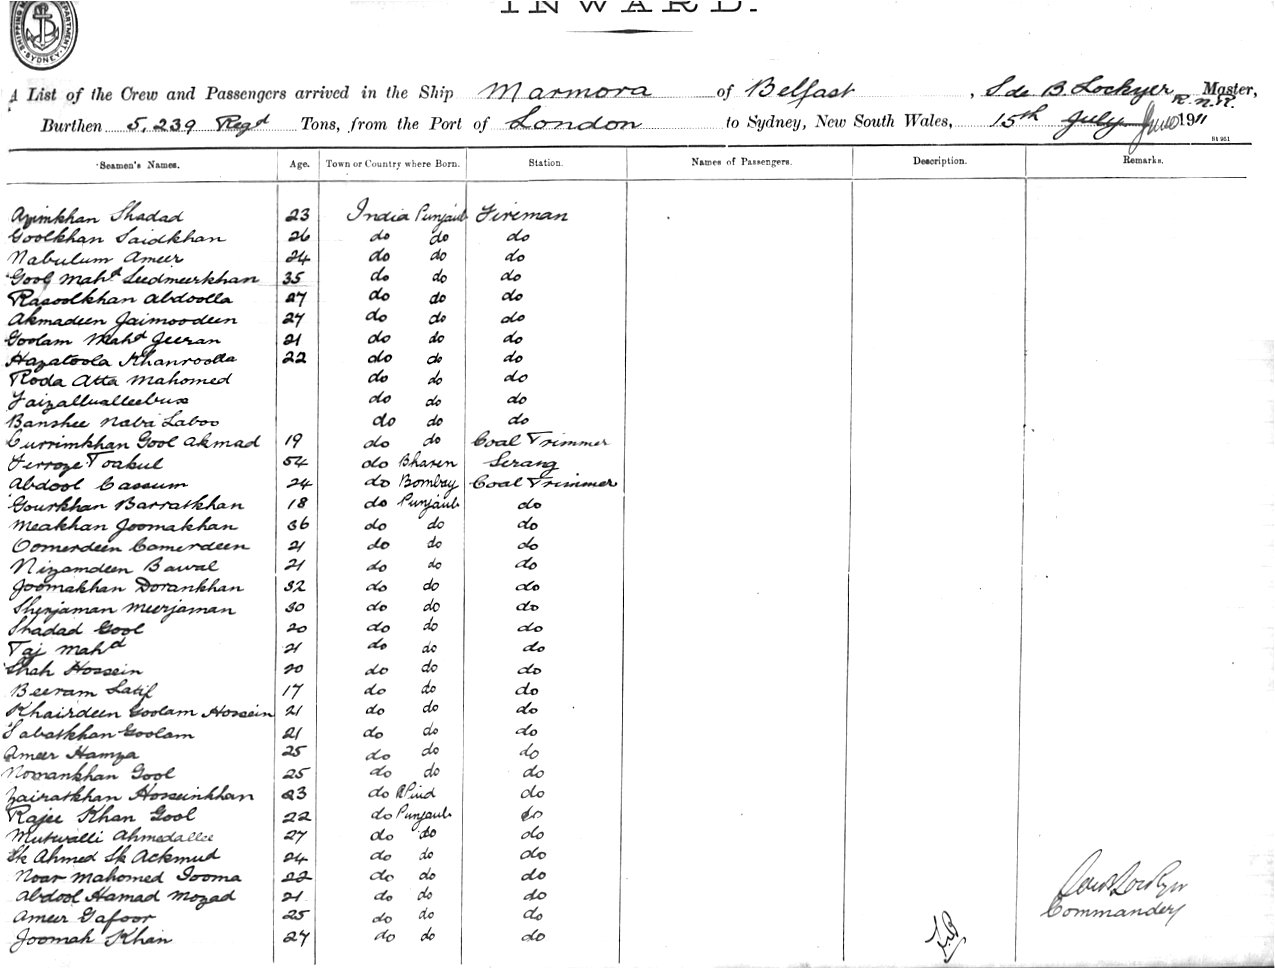 SHIPPING M DEPARTMENT
SYDNEY
INWARD.
A List of the Crew and Passengers arrived in the Ship Marmora of Belfast, S de B. Lockyer Master, R.N.R.
Burthen 5,239 Regd Tons, from the Port of London to Sydney, New South Wales, 15th July June 1911
Seamen's Names. Age. Town or Country where Born. Station. Names of Passengers. Description. Remarks.
Azimkhan Shadad 23 India Punjaub Fireman
Goolkhan Saidkhan 26 do do do
Nabulum Ameer 24 do do do
Gool Mahd Seedmeerkhan 35 do do do
Rasoolkhan Abdoolla 27 do do do
Akmadeen Jaimoodeen 27 do do do
Goolam Mahd Jeeran 21 do do do
Hazatoola Khanroolla 22 do do do
Roda Atta Mahomed do do do
Faizallualleebux do do do
Banshee Naba Laboo do do do
Currimkhan Gool Akmad 19 do do Coal Trimmer
Ferroze Toakul 54 do Bharen Serang
Abdool Cassum 24 do Bombay Coal Trimmer
Gourkhan Barratkhan 18 do Punjaub do
Meakhan Joomakhan 36 do do do
Oomerdeen Comerdeen 21 do do do
Nizamdeen Bawal 21 do do do
Joomakhan Dorankhan 32 do do do
Sherjaman Meerjaman 30 do do do
Shadad Gool 20 do do do
Taj Mahd 21 do do do
Shah Hossein 20 do do do
Beeram Latif 17 do do do
Khairdeen Goolam Hossein 21 do do do
Sabatkhan Goolam 21 do do do
Ameer Hamza 25 do do do
Nomankhan Gool 25 do do do
Zairatkhan Hosseinkhan 23 do RPind do
Rajee Khan Gool 22 do Punjaub do
Mutwalli Ahmedallee 27 do do do
Sk Ahmed Sk Ackmud 24 do do do
Noor Mahomed Jooma 22 do do do
Abdool Hamad Mozad 21 do do do
Ameer Gafoor 25 do do do
Commander
Joomah Khan 27 do do do